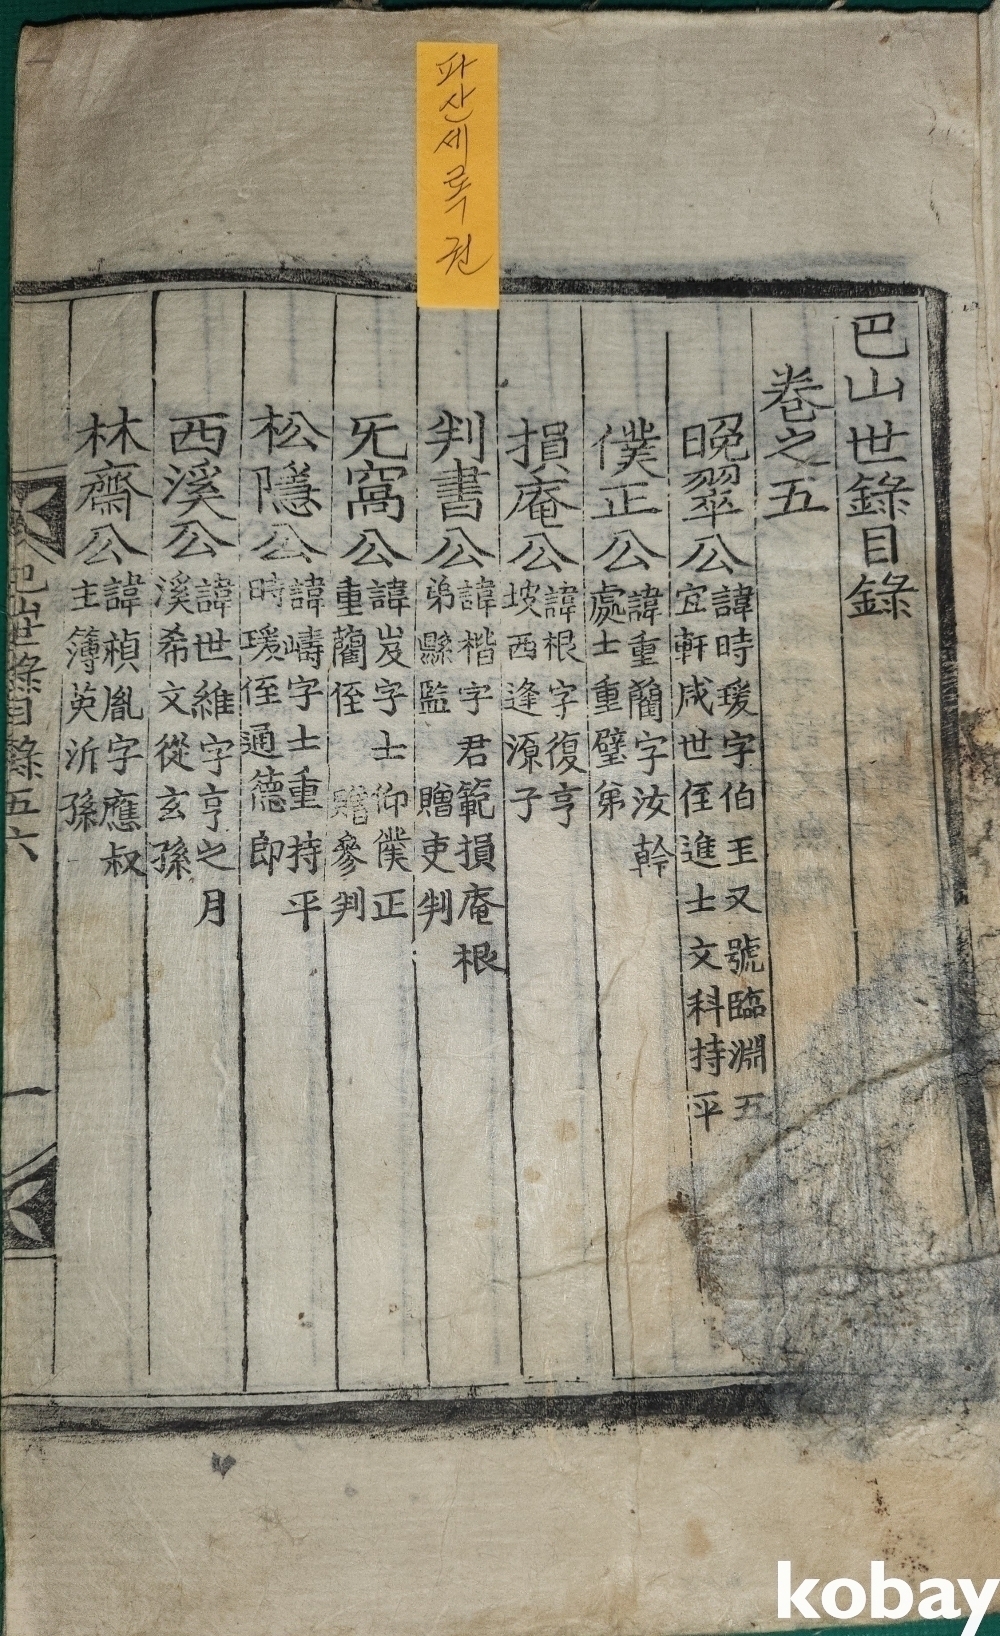 파산세록 권
巴山世錄目錄
卷之五
晩翠公 諱時瑗字伯玉又號臨淵五
宜軒成世侄進士文科持平
僕正公 諱重藺字汝幹
處士重璧弟
損庵公 諱根字復亨
坡西逢源子
判書公 諱楷字君範損庵根
弟縣監 贈吏判
旡窩公 諱岌字士仰僕正
重藺侄 贈參判
松隱公 諱嶹字士重持平
時瑗侄通德郎
西溪公 諱世維字亨之月
溪希文從玄孫
林齋公 諱楨胤字應叔
主簿英沂孫
巴山世錄目錄五六 一
kobay